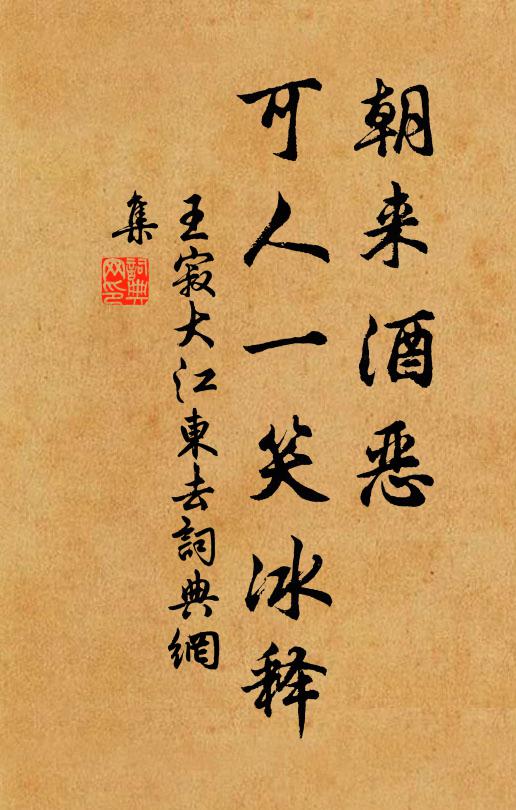 朝来酒恶
可人一笑冰释
王寂大江東去詞典網
集
詞典
网印